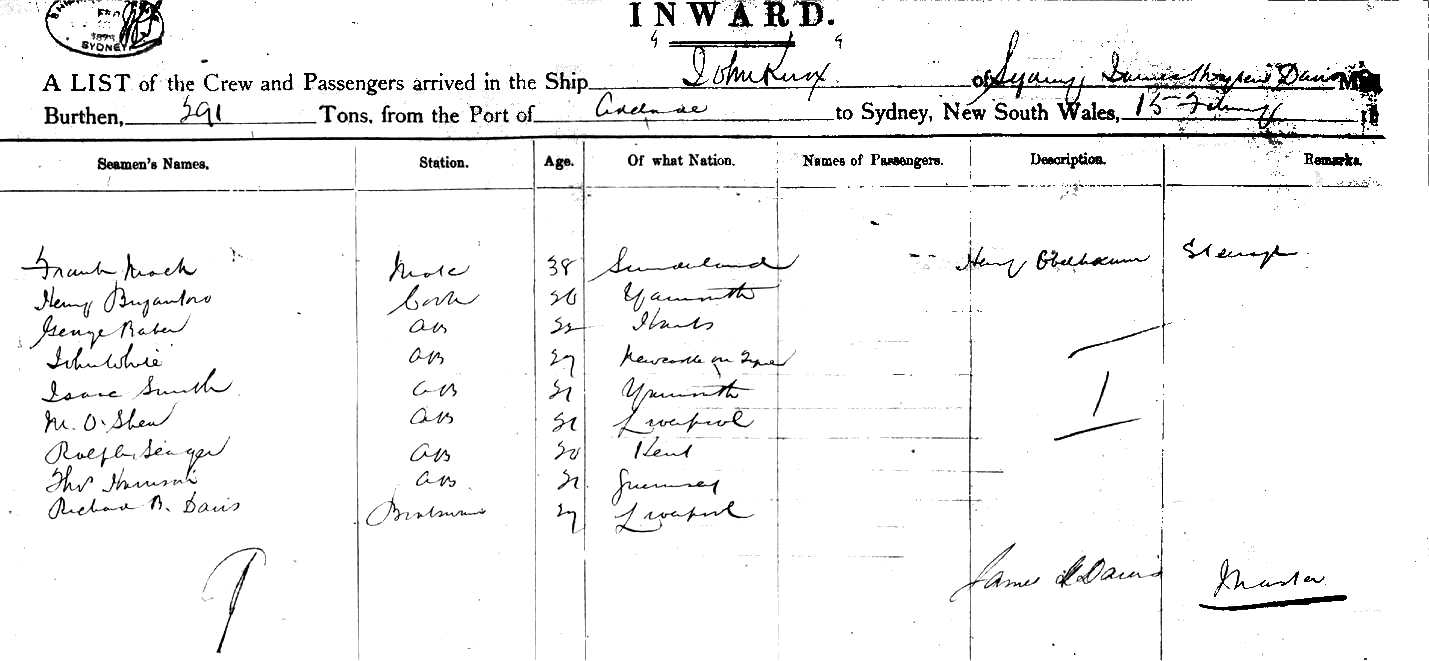 SYDNEY
INWARD.
A LIST of the Crew and Passengers arrived in the Ship John Knox of Sydney, James Davis
Burthen, 391 Tons, from the Port of Adelaide to Sydney, New South Wales, 15 February
Seamen's Names. Station. Age. Of what Nation. Names of Passengers. Description. Remarks.
Frank Mack Mate 38 Sunderland Henry Steerage
Henry Cook Yarmouth
George Baker AB Hants
John White AB 29 Newcastle on Tyne
Isaac Smith AB 21 Yarmouth
M. O'Shea AB 21 Liverpool
AB 20 Kent
Thos Harrison AB 21 Guernsey
Richard B. Davis 29 Liverpool
1
James Davis Master